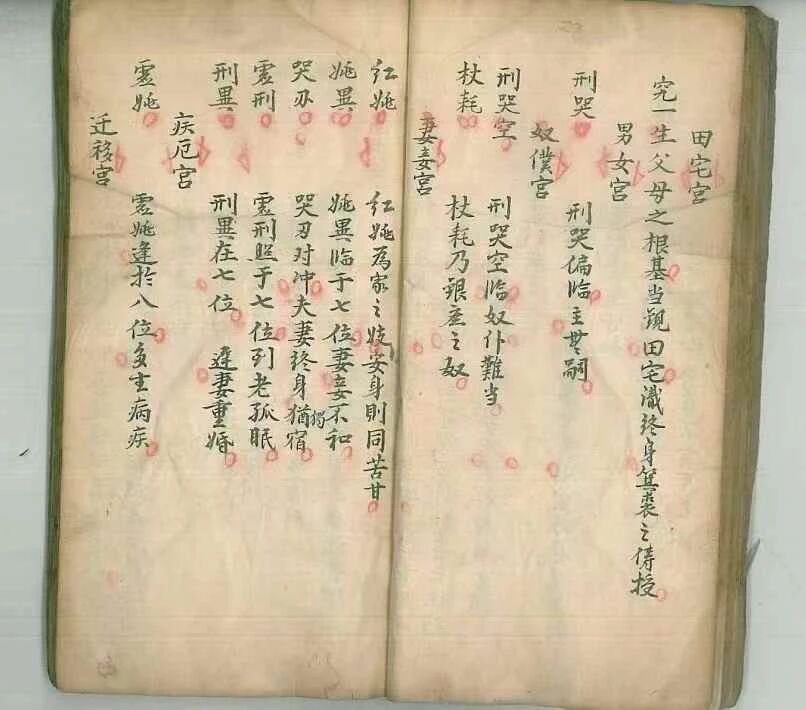 田宅宫
究一生父母之根基当觇田宅
终身箕裘之俦授
男女宫
刑哭 刑哭偏临主無嗣
奴僕宫
刑哭空 刑哭空临奴仆難当
杖耗 杖耗乃狠虚之奴
妻妾宫
红姚 红姚為家之妓安身則同苦甘
姚異 姚異临于七位妻妾不和
哭刃 哭刃对冲夫妻终身猶獨宿
虚刑 虚刑照于七位到老孤眠
刑異 刑異在七位 违妻重婚
疾厄宫
虚姚 虚姚逢於八位多主病疾
迁移宫